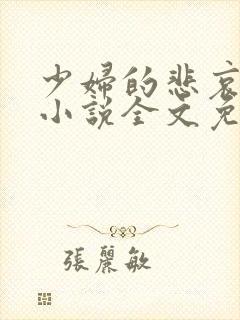 少婦的悲哀
小說全文免
張麗敏